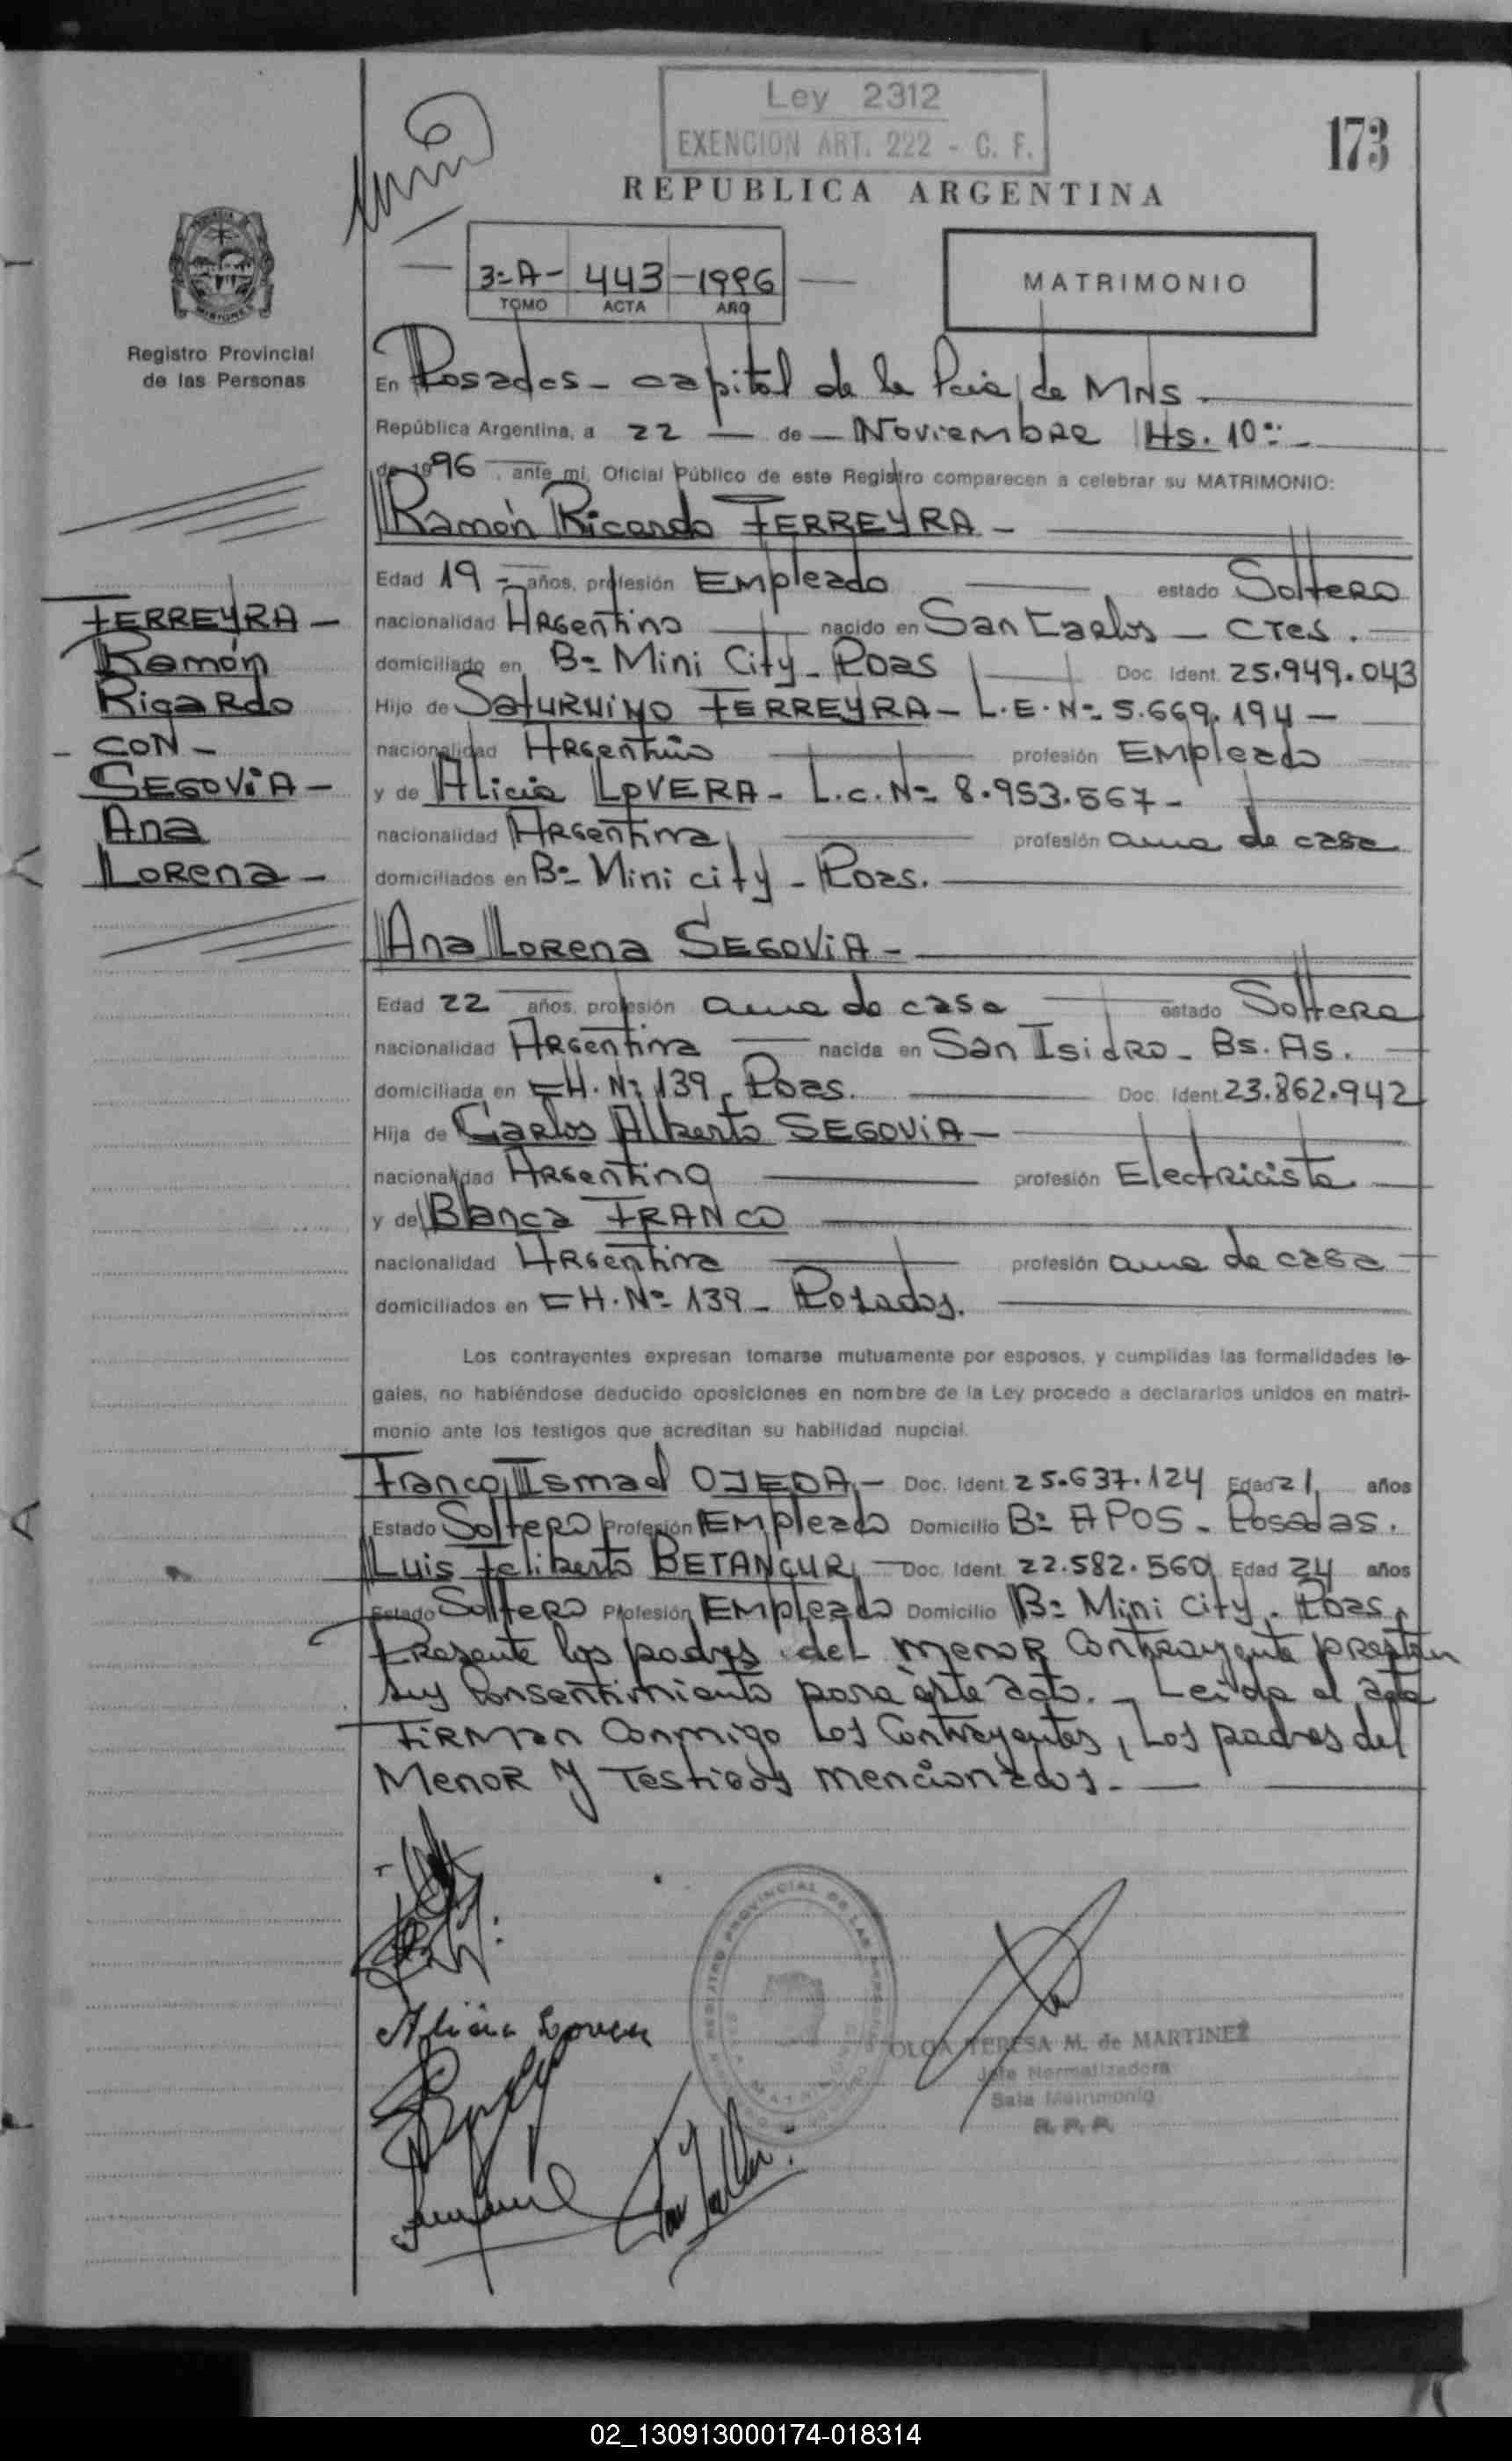 Ley 2312
EXENCION ART. 222 - C. F.
173
REPUBLICA ARGENTINA
3=A- 443 -1996
TOMO ACTA AÑO
MATRIMONIO
MISIONES
Registro Provincial
de las Personas
En Posadas - capital de la Pcia de MNS.
República Argentina, a 22 — de — Noviembre Hs. 10:-
de 1996, ante mi, Oficial Público de este Registro comparecen a celebrar su MATRIMONIO:
Ramón Ricardo FERREYRA -
Edad 19 - años, profesión Empleado estado Soltero
nacionalidad Argentino nacido en San Carlos - Ctes.
domiciliado en B= Mini City - Pdas Doc. Ident. 25.949.043
Hijo de Saturnino FERREYRA - L.E.Nº 5.669.194 -
nacionalidad Argentino profesión Empleado
y de Alicia LOVERA - L.C.Nº 8.953.567 -
nacionalidad Argentina profesión ama de casa
domiciliados en B=- Mini city - Pdas.
FERREYRA -
Ramón
Ricardo
- CON -
SEGOVIA -
Ana
Lorena -
Ana Lorena SEGOVIA -
Edad 22 años, profesión ama de casa estado Soltera
nacionalidad Argentina nacida en San Isidro - Bs. As.
domiciliada en CH. Nº 139 - Pdas. Doc. Ident. 23.862.942
Hija de Carlos Alberto SEGOVIA -
nacionalidad Argentino profesión Electricista
y de Blanca FRANCO
nacionalidad Argentina profesión ama de casa
domiciliados en CH. Nº 139 - Posadas.
Los contrayentes expresan tomarse mutuamente por esposos, y cumplidas las formalidades le-
gales, no habiéndose deducido oposiciones en nombre de la Ley procedo a declararlos unidos en matri-
monio ante los testigos que acreditan su habilidad nupcial.
Franco Ismael OJEDA - Doc. Ident. 25.637.124 Edad 21 años
Estado Soltero Profesión Empleado Domicilio B= APOS - Posadas.
Luis Feliberto BETANCUR - Doc. Ident. 22.582.560 Edad 24 años
Estado Soltero Profesión Empleado Domicilio B= Mini City - Pdas.
Presente los padres del menor contrayente prestan
su consentimiento para éste acto. - Leida el acta
Firman conmigo Los Contrayentes, Los padres del
Menor y Testigos mencionados. -
Alicia Lovera
OLGA TERESA M. de MARTINEZ
Jefe Normalizadora
Sala Matrimonio
R. P. P.
02_130913000174-018314